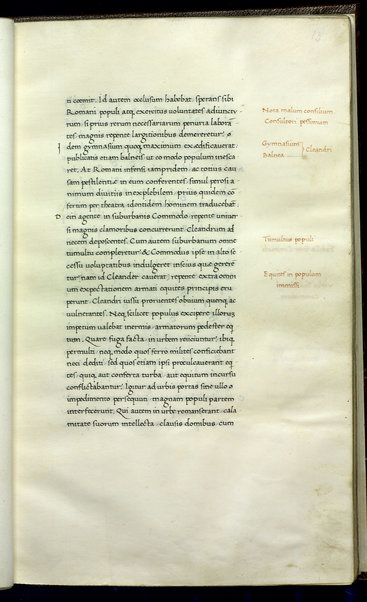 ti coemit. Id autem occlusum habebat. sperans sibi
Romani populi atq; exercitus voluntates adiunctu
rum. si prius rerum necessariarum penuria labora
tes. magnis repente largitionibus demereretur.
idem gymnasium quoq; maximum exedificauerat.
publicatis etiam balneis. ut eo modo populum inesca
ret. At Romani infensi iampridem. ac totius cau
sam pestilentie in eum conferentes. simul perosi a
nimum diuitiis inexplebilem. prius quidem co
ferum per theatra. identidem hominem traducebat.
Deni agente in suburbanis Commodo. repente uniuer
si magnis clamoribus concurrerunt. Cleandrum ad
necem deposcentes. Cum autem suburbanum omne
tumultu compleretur. & Commodus ipse in alto se
cessu voluptatibus indulgeret. inscius que gerere
tur. nam id Cleander cauerat. repente extra omni
um expectationem armati equites principis eru
perunt. Cleandri iussu. proruentes obuium quemq; ac
vulnerantes. Neq; scilicet populus excipere illorum
impetum ualebat inermis. armatorum pedester eq
tum. Quare fuga facta. in urbem reiiciuntur. ibiq;
permulti. neq; modo quos ferro milites conficiebant
neci dediti. sed quos etiam ipsi proculcauerant eq
tes. quiq; aut conferta turba. aut equitum incursu
conflictabantur. Igitur ad urbis portas sine ullo
impedimento persequuti. magnam populi partem
interfecerunt. Qui autem in urbe romanserant. cala
mitate suorum intellecta. clausis domibus. cum
Nota malum consilium
Consultori pessimum
Gymnasium
Balnea
Cleandri
Tumultus populi
Equites in populum
immissi